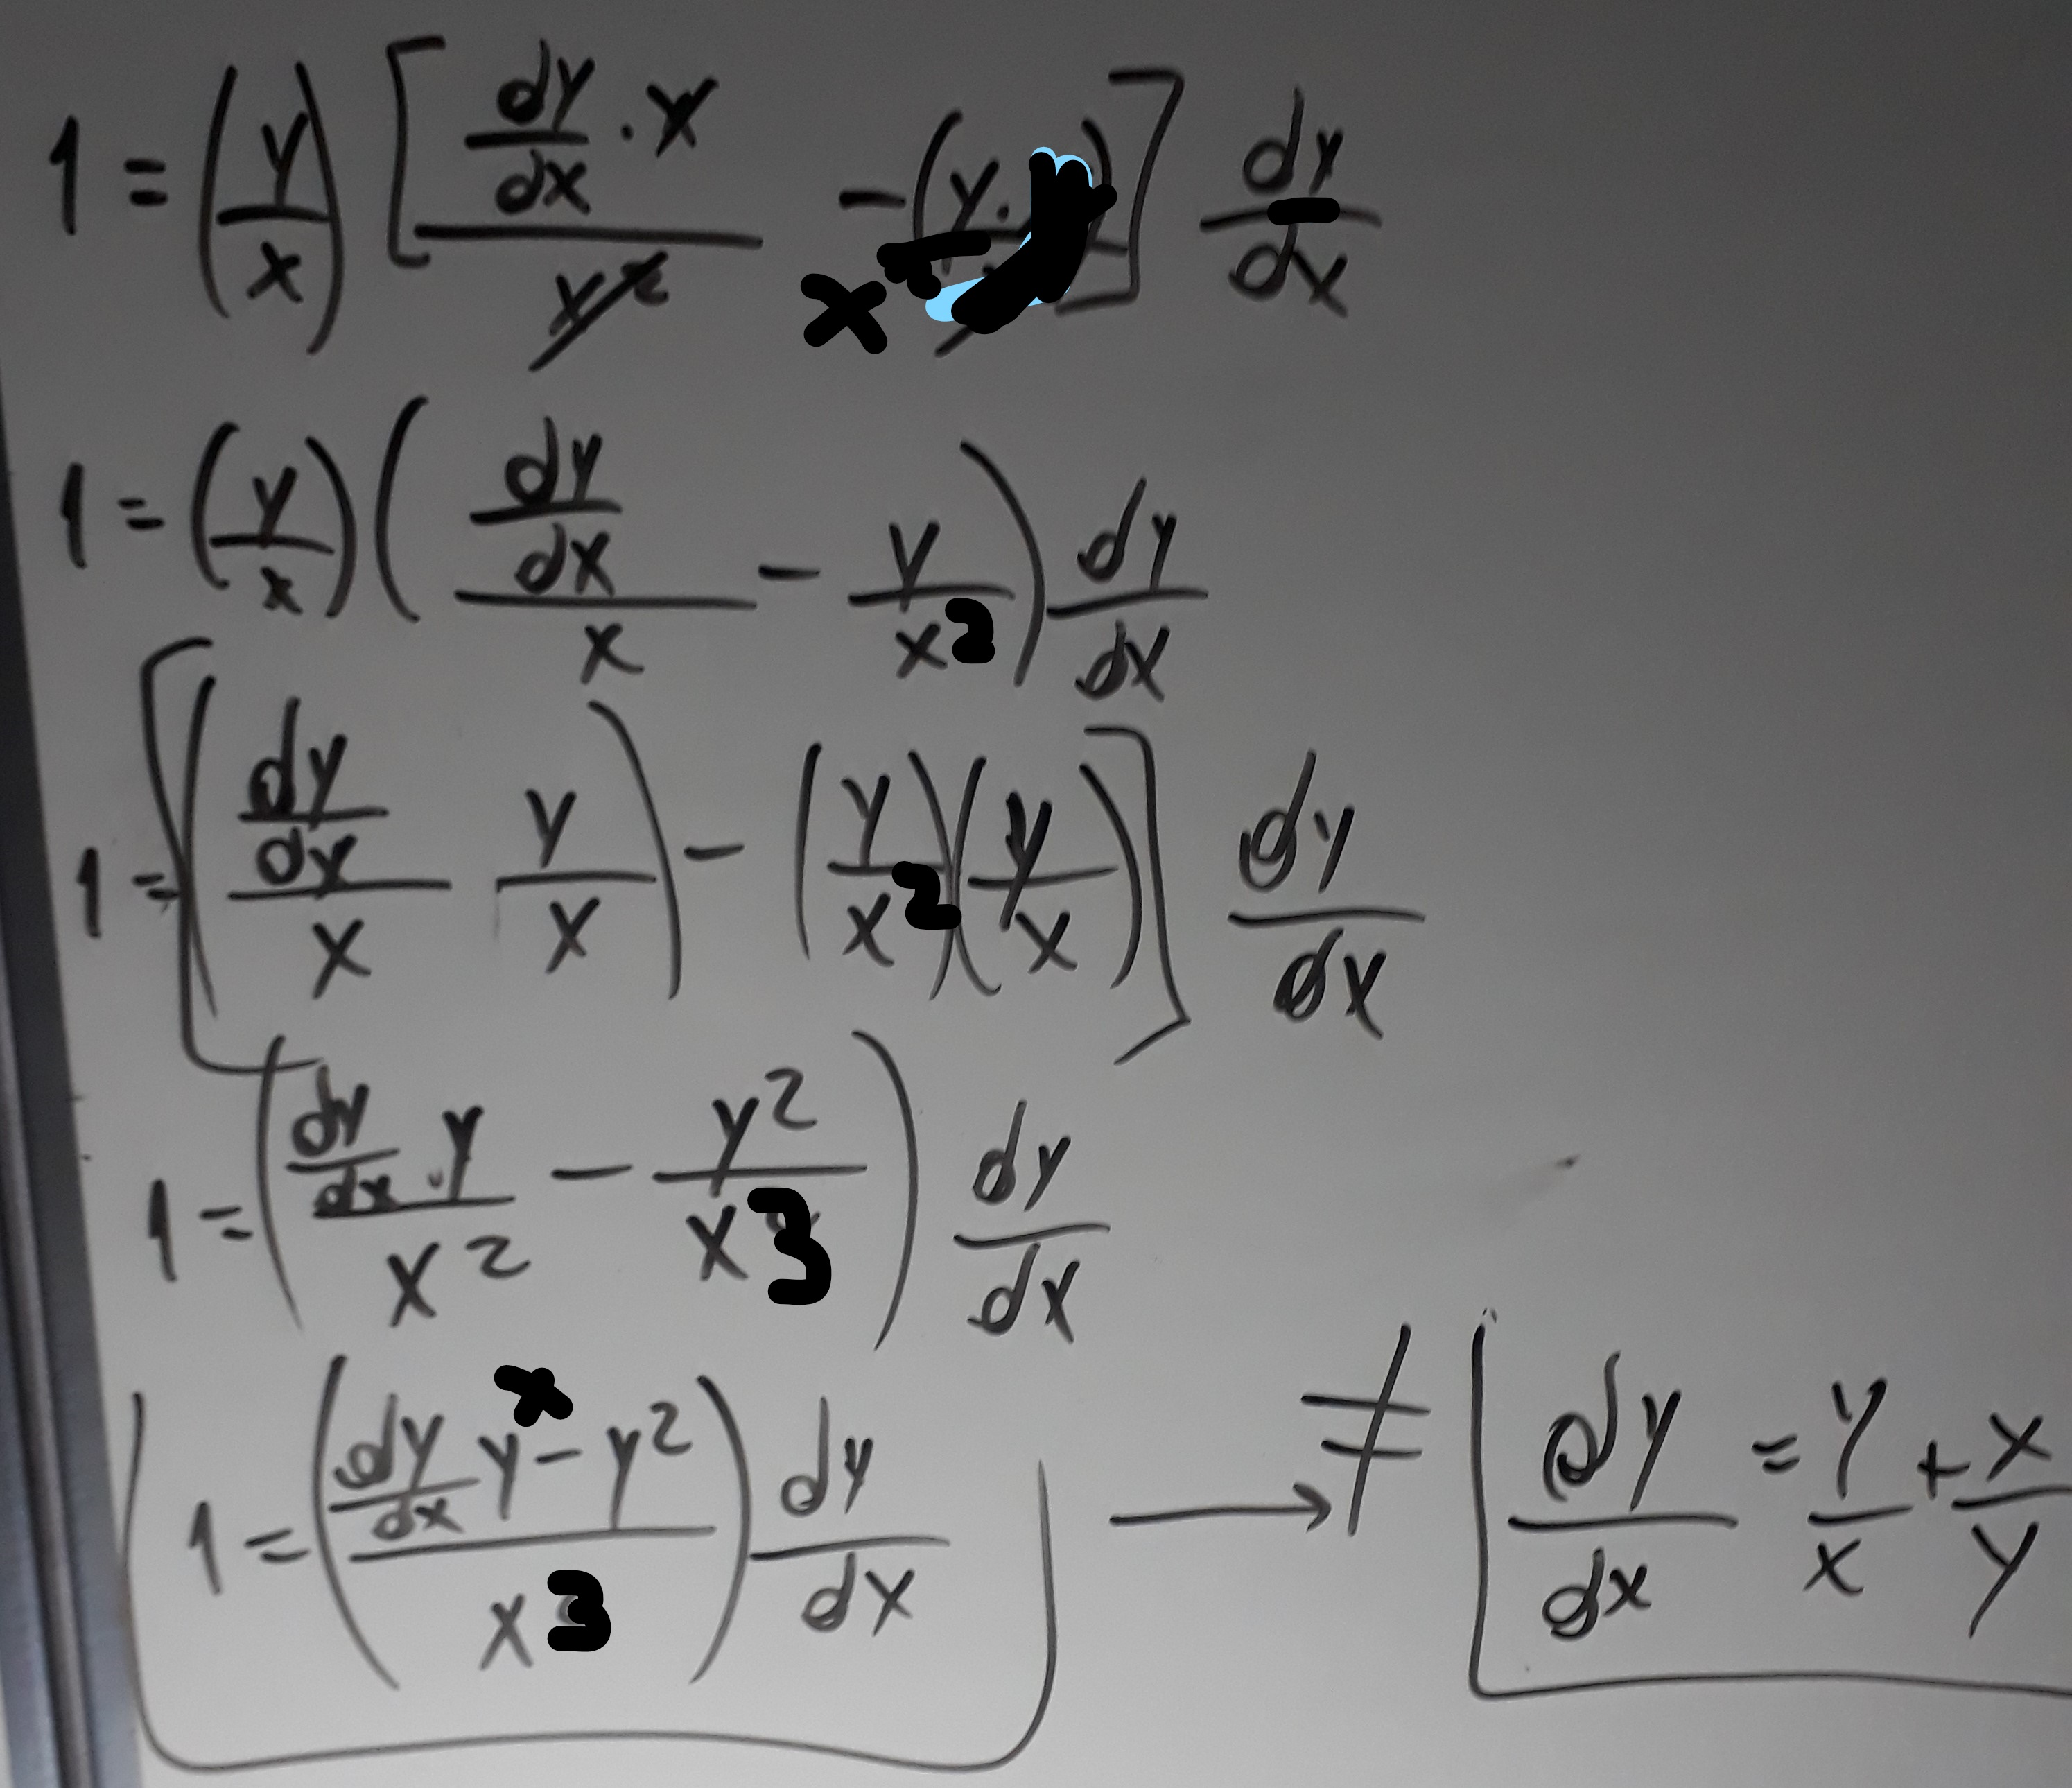 1 = (y/x) [ (dy/dx · x)/x² − (y. )/x ] dy/dx
1 = (y/x) ( (dy/dx)/x − y/x² ) dy/dx
1 = [ ( (dy/dx)/x y/x ) − (y/x²)(y/x) ] dy/dx
1 = ( (dy/dx · y)/x² − y²/x³ ) dy/dx
1 = ( (dy/dx x y − y²)/x³ ) dy/dx → ≠ dy/dx = y/x + x/y